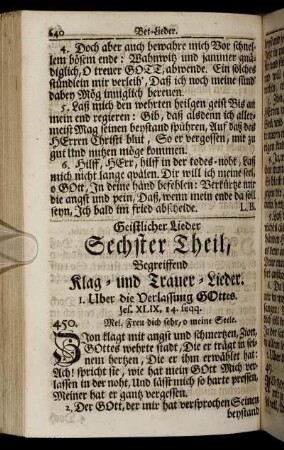 640 Bet-Lieder.
4. Doch aber auch bewahre mich Vor schnel-
lem bösem ende: Wahnwitz und jammer gnä-
diglich, O treuer GOTT, abwende. Ein solches
stündlein mir verleih', Daß ich noch meine sünd'
daben Mög inniglich bereuen.
5. Laß mich den wehrten heilgen geist Bis an
mein end regieren: Gib, daß alsdenn ich aller-
meist Mag seinen beystand spühren, Auf daß des
HErren Christi blut, So er vergossen, mit zu
gut Und nutzen möge kommen.
6. Hilff, HErr, hilff in der todes-noht, Laß
mich nicht lange quälen. Dir will ich meine seel,
o GOtt, In deine händ befehlen: Verkürtze mir
die angst und pein, Daß, wenn mein ende da soll
seyn, Ich bald im fried abscheide. L. B.
Geistlicher Lieder
Sechster Theil,
Begreiffend
Klag- und Trauer-Lieder.
1. Uber die Verlassung GOttes.
Jes. XLIX, 14. seqq.
450. Mel. Freu dich sehr, o meine Seele.
Zion klagt mit angst und schmertzen, Zion,
GOttes wehrte stadt, Die er trägt in sei-
nem hertzen, Die er ihm erwählet hat:
Ach! spricht sie, wie hat mein GOtt Mich ver-
lassen in der noht, Und läßt mich so harte pressen,
Meiner hat er gantz vergessen.
2. Der GOtt, der mir hat versprochen Seinen
beystand